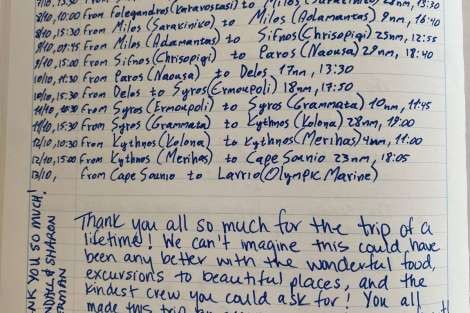 10:00 from Folegandros (Karavostasi) to Milos (Sarakiniko)
8/10, from Milos (Sarakiniko) to Milos (Adamantas) 9nm, 16:40
9/10, 07:45 From Milos (Adamantas) to Sifnos (Chrisopigi) 25nm, 12:55
9/10, 15:00 From Sifnos (Chrisopigi) to Paros (Naousa) 29nm, 18:40
10/10, 11:30 From Paros (Naousa) to Delos 17nm, 13:30
10/10, 15:30 From Delos to Syros (Ermoupoli) 18nm, 17:50
11/10, 10:30 From Syros (Ermoupoli) to Syros (Grammata) 10nm, 11:45
11/10, 15:30 From Syros (Grammata) to Kythnos (Kolona) 28nm, 19:00
12/10, 10:30 From Kythnos (Kolona) to Kythnos (Merihas) 4nm, 11:00
12/10, 15:00 From Kythnos (Merihas) to Cape Sounio 23nm, 18:05
13/10, From Cape Sounio to Lavrio (Olympic Marine)
Thank you all so much for the trip of a
lifetime! We can't imagine this could have
been any better with the wonderful food,
excursions to beautiful places, and the
kindest crew you could ask for! You all
made this trip
YOU SO MUCH!
& SHARON